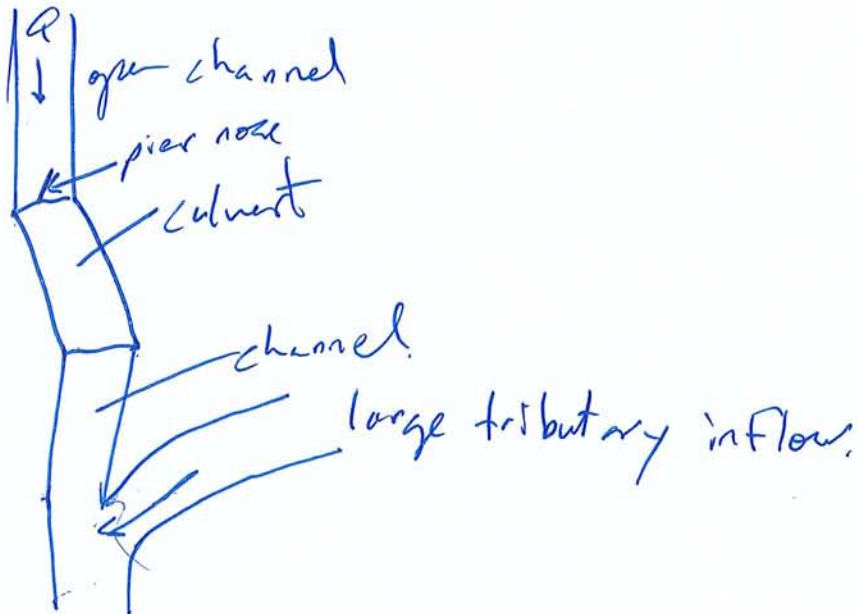 Q
open channel
pier nose
culvert
channel.
large tributary inflow.